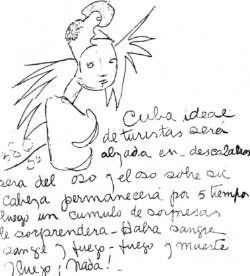 Cuba ideal
de turistas será
alzada en descalabros
sera del oso y el oso sobre su
cabeza permanecerá por 5 tiempo
luego un cumulo de sorpresas
le sorprendera - Habra sangre
sangre y fuego - fuego y muerte
y luego ¡Nada!